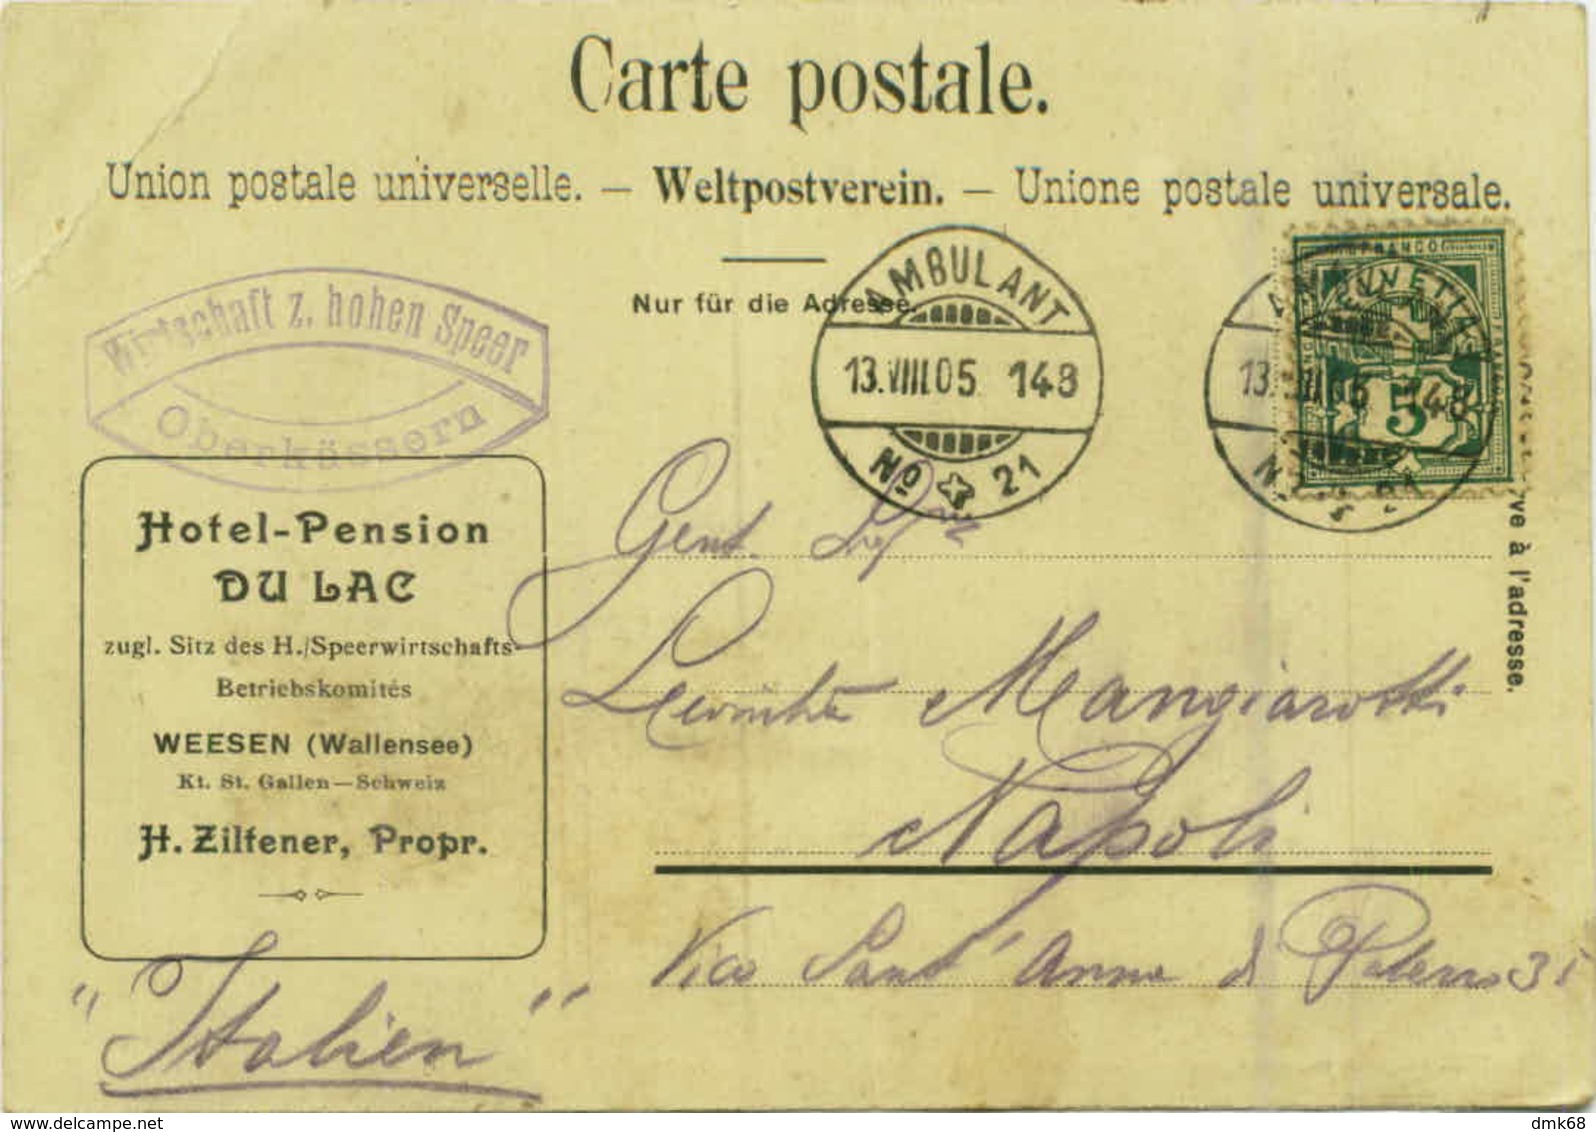 Carte postale.
Union postale universelle. — Weltpostverein. — Unione postale universale.
Nur für die Adresse.
AMBULANT
13.VIII.05 148
No 21
AMBULANT
13.VIII.05 148
No 21
FRANCO
HELVETIA
5
Wirtschaft z. hohen Speer
Oberkässern
Hotel-Pension
DU LAC
zugl. Sitz des H./Speerwirtschafts-
Betriebskomités
WEESEN (Wallensee)
Kt. St. Gallen—Schweiz
H. Zilfener, Propr.
à l'adresse.
Gent.
Mangiarotti
Napoli
Vico Sant'Anna di 35
"Italien"
www.delcampe.net
dmk68